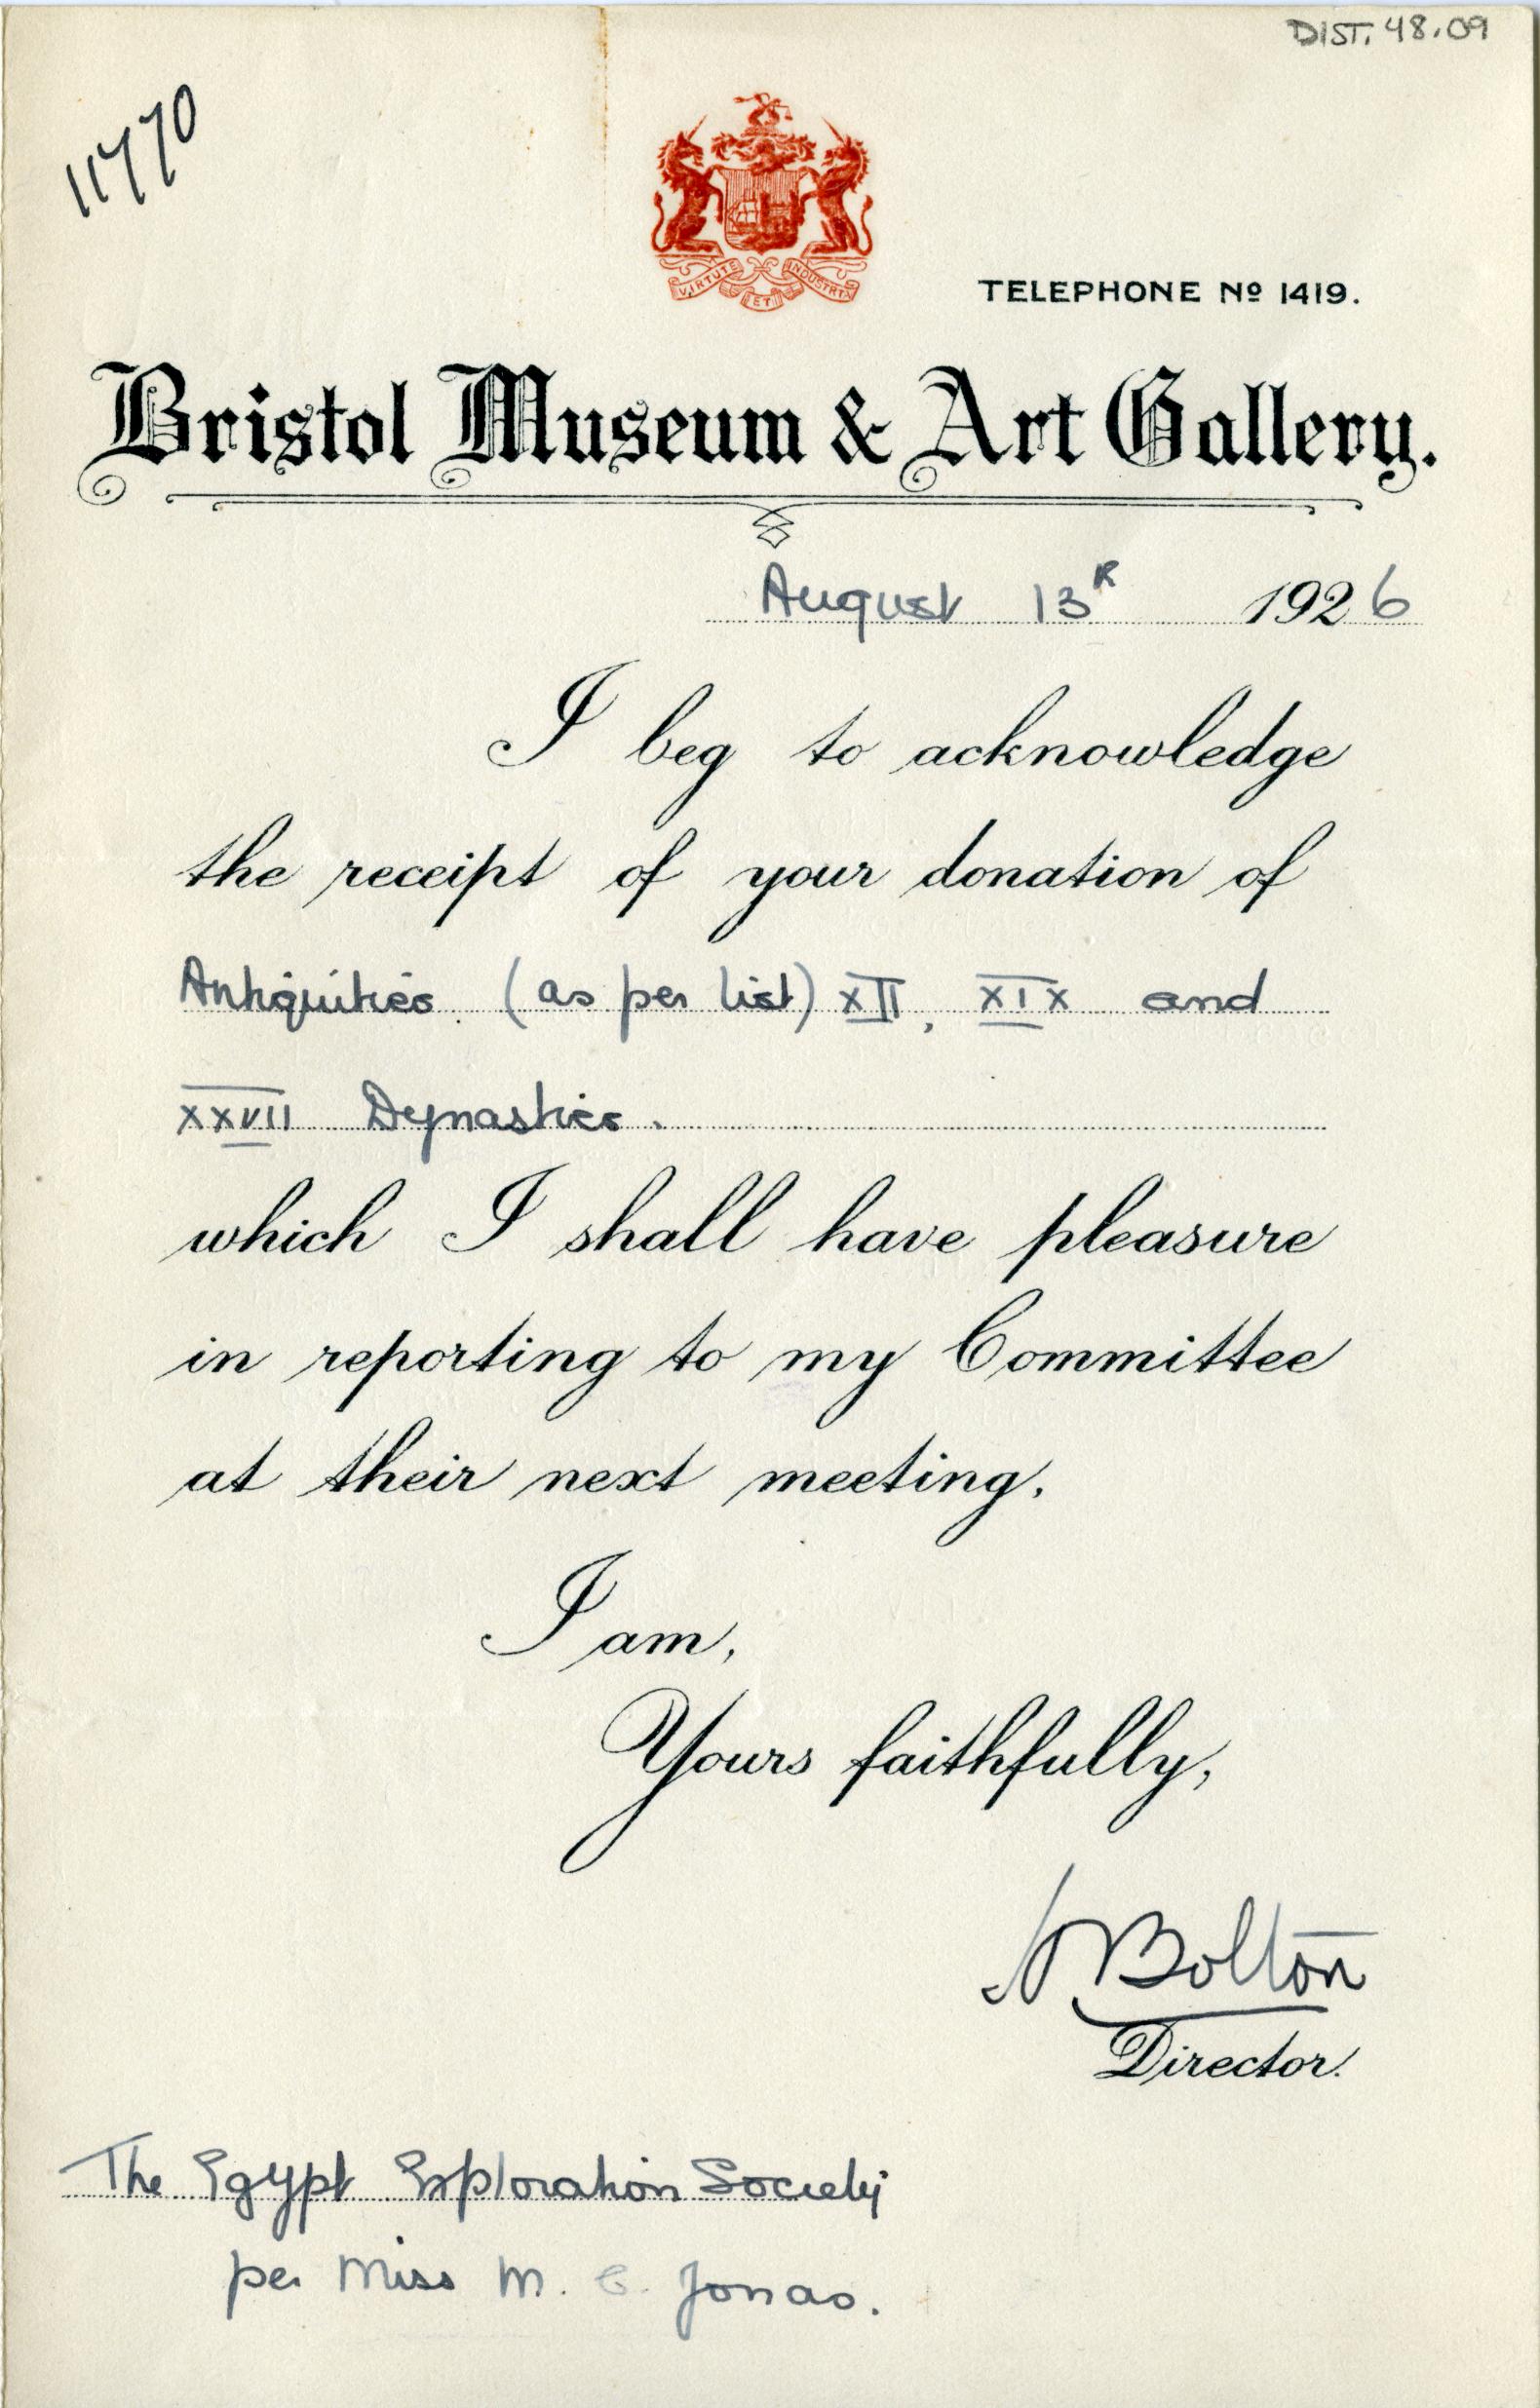 DIST. 48.09
11770
VIRTUTE ET INDUSTRIA
TELEPHONE Nº 1419.
Bristol Museum & Art Gallery.
August 13th 1926
I beg to acknowledge
the receipt of your donation of
Antiquities (as per list) XII, XIX and
XXVII Dynasties.
which I shall have pleasure
in reporting to my Committee
at their next meeting.
I am,
Yours faithfully,
H Bolton
Director.
The Egypt Exploration Society
per Miss M. C. Jonas.